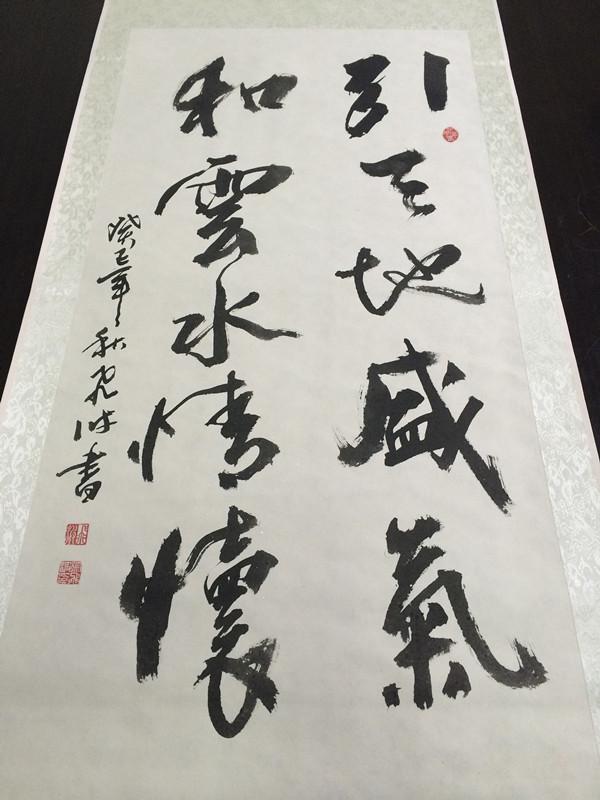 引天地盛氣
和雲水情懷
癸巳年秋 書